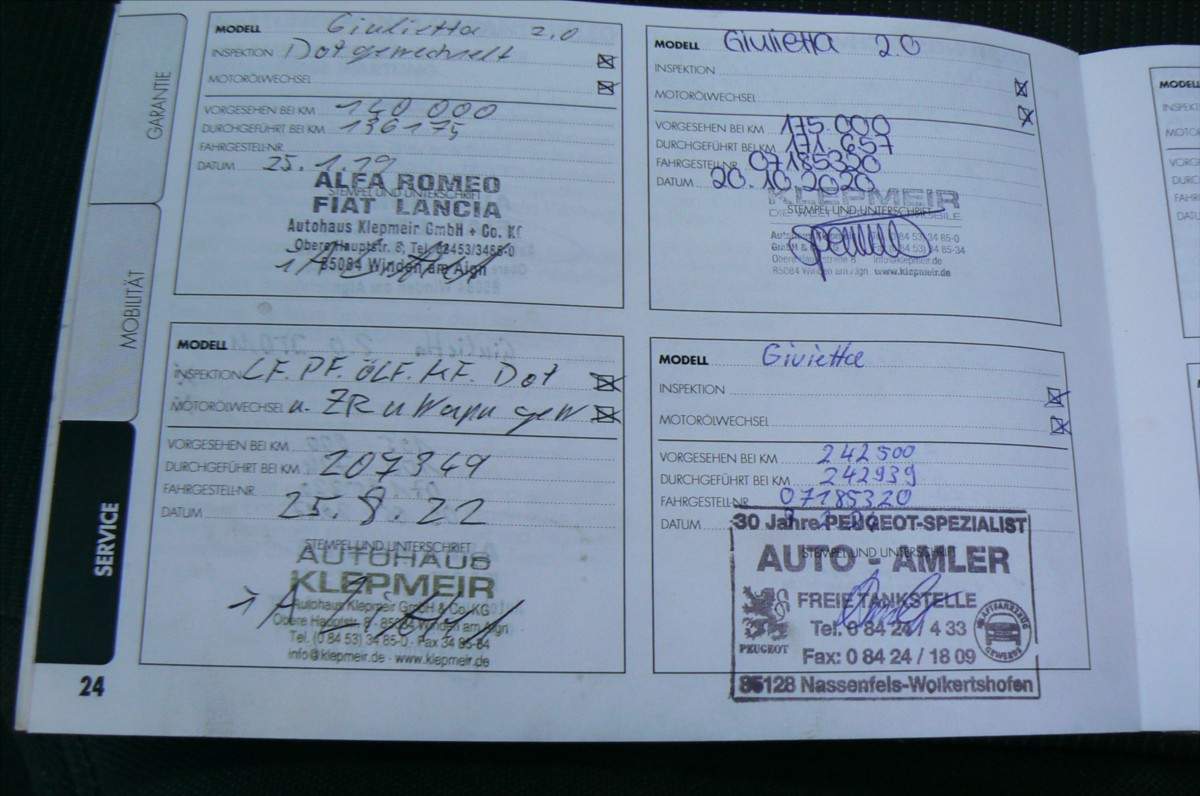 GARANTIE
MOBILITÄT
SERVICE
24
MODELL Giulietta 2.0
INSPEKTION Dot gewechselt
MOTORÖLWECHSEL
VORGESEHEN BEI KM 140 000
DURCHGEFÜHRT BEI KM 136175
FAHRGESTELL-NR.
DATUM 25.1.19
ALFA ROMEO
STEMPEL UND UNTERSCHRIFT
FIAT LANCIA
Autohaus Klepmeir GmbH + Co. KG
Obere Hauptstr. 8, Tel. 08453/3485-0
85084 Winden am Aign
MODELL Giulietta 2.0
INSPEKTION
MOTORÖLWECHSEL
VORGESEHEN BEI KM 175.000
DURCHGEFÜHRT BEI KM 171.657
FAHRGESTELL-NR. 07185320
DATUM 20.10.2020
KLEPMEIR
STEMPEL UND UNTERSCHRIFT
Obere Hauptstraße 8 info@klepmeir.de
85084 Winden am Aign www.klepmeir.de
MODELL
INSPEKTION LF. PF. ÖLF. KF. Dot
MOTORÖLWECHSEL u. ZR u Wapu gew
VORGESEHEN BEI KM
DURCHGEFÜHRT BEI KM 207349
FAHRGESTELL-NR.
DATUM 25.8.22
STEMPEL UND UNTERSCHRIFT
AUTOHAUS
KLEPMEIR
Autohaus Klepmeir GmbH & Co. KG
Obere Hauptstr. 8 · 85084 Winden am Aign
Tel. (0 84 53) 34 85-0 · Fax 34 85-34
info@klepmeir.de · www.klepmeir.de
MODELL Giulietta
INSPEKTION
MOTORÖLWECHSEL
VORGESEHEN BEI KM 242500
DURCHGEFÜHRT BEI KM 242939
FAHRGESTELL-NR. 07185320
DATUM
30 Jahre PEUGEOT-SPEZIALIST
STEMPEL UND UNTERSCHRIFT
AUTO - AMLER
FREIE TANKSTELLE
Tel. 0 84 24 / 4 33
PEUGEOT
Fax: 0 84 24 / 18 09
85128 Nassenfels-Wolkertshofen
MODELL